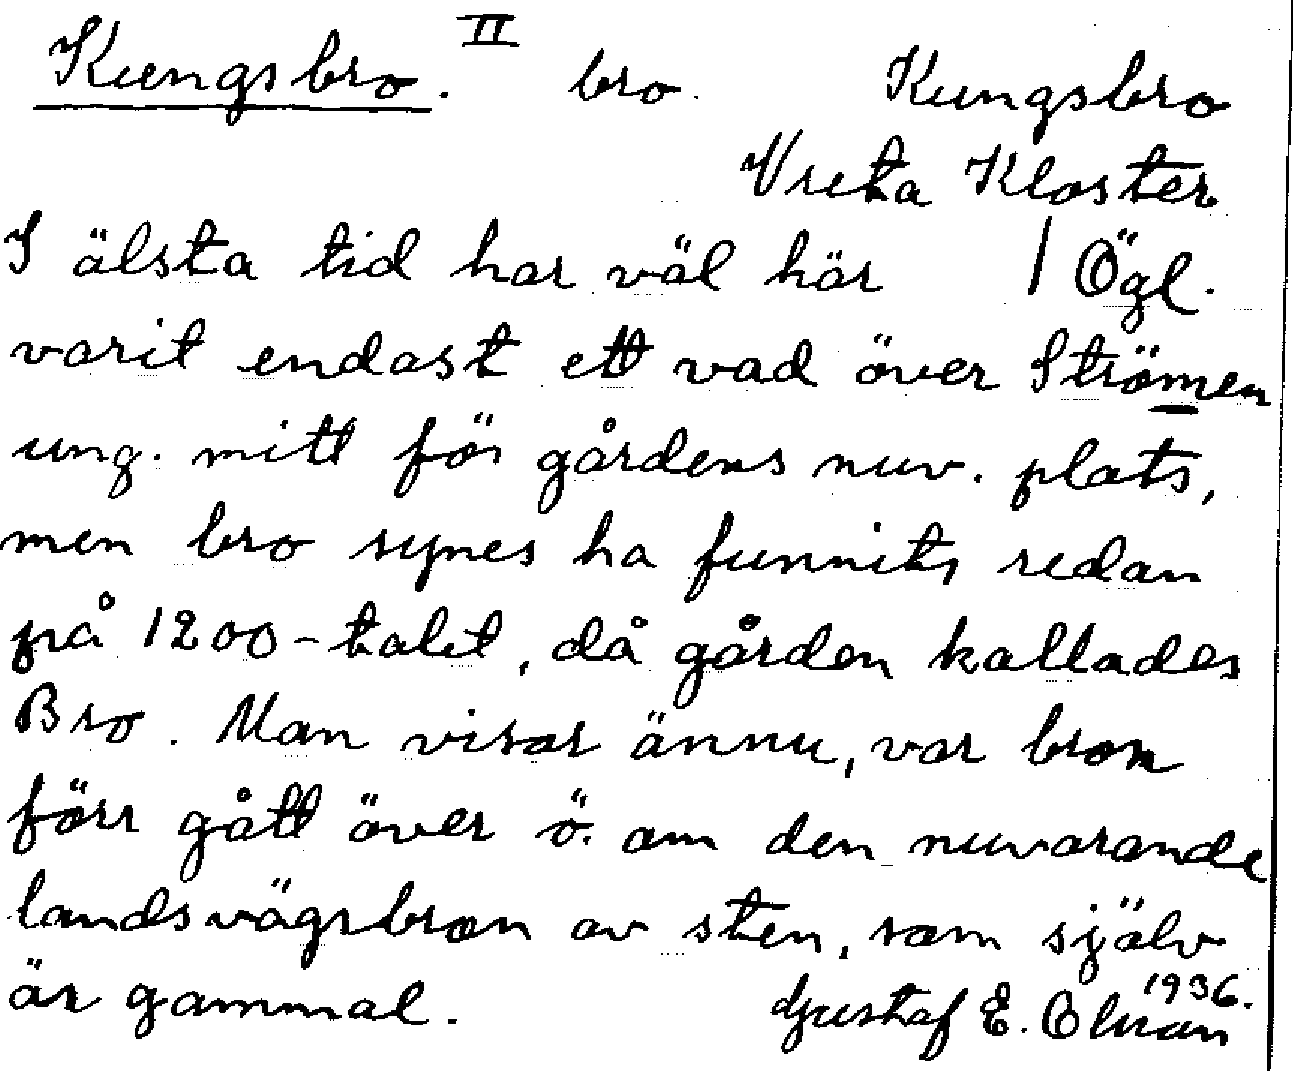 Kungsbro. II bro. Kungsbro
Vreta Kloster
I älsta tid har väl här / Ögl.
varit endast ett vad över Strömen
ung. mitt för gårdens nuv. plats,
men bro synes ha funnits redan
på 1200-talet, då gården kallades
Bro. Man visar ännu, var bron
förr gått över ö. om den nuvarande
landsvägsbron av sten, som själv
är gammal. Gustaf E. 1936.